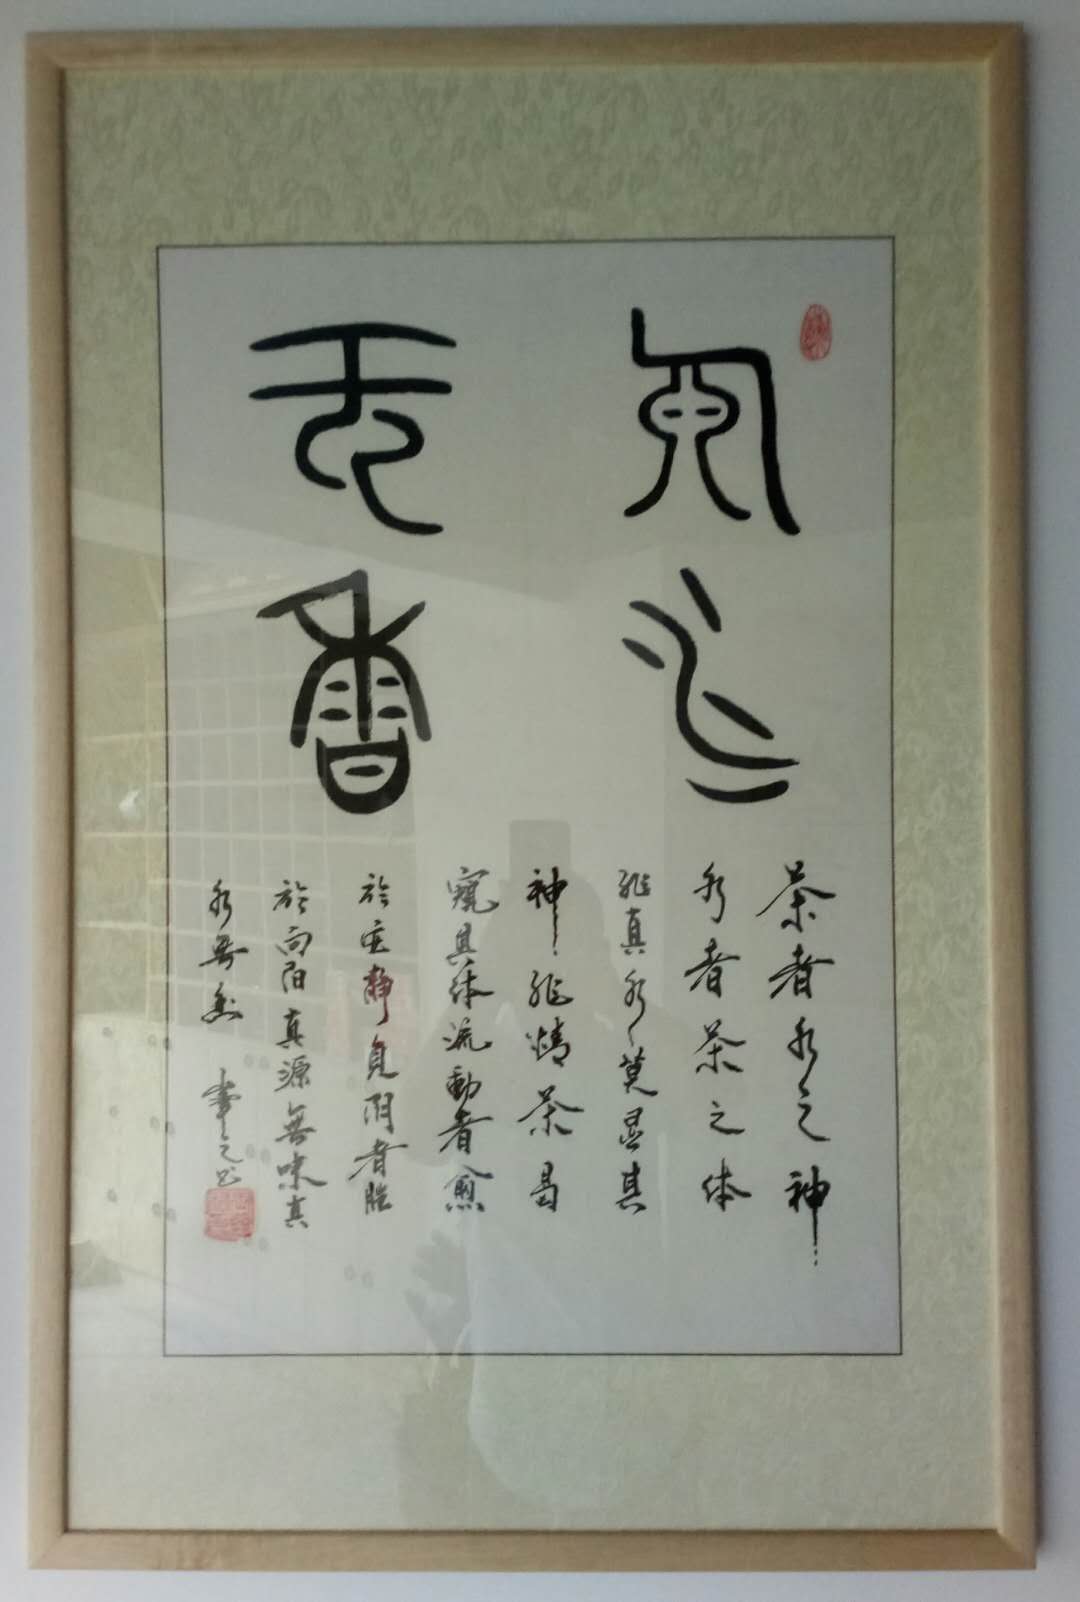 真水
无香
茶者水之神
水者茶之体
非真水莫显其
神非精茶曷
窥其体流動者愈
於安静負阴者胜
於向阳真源無味真
水無香